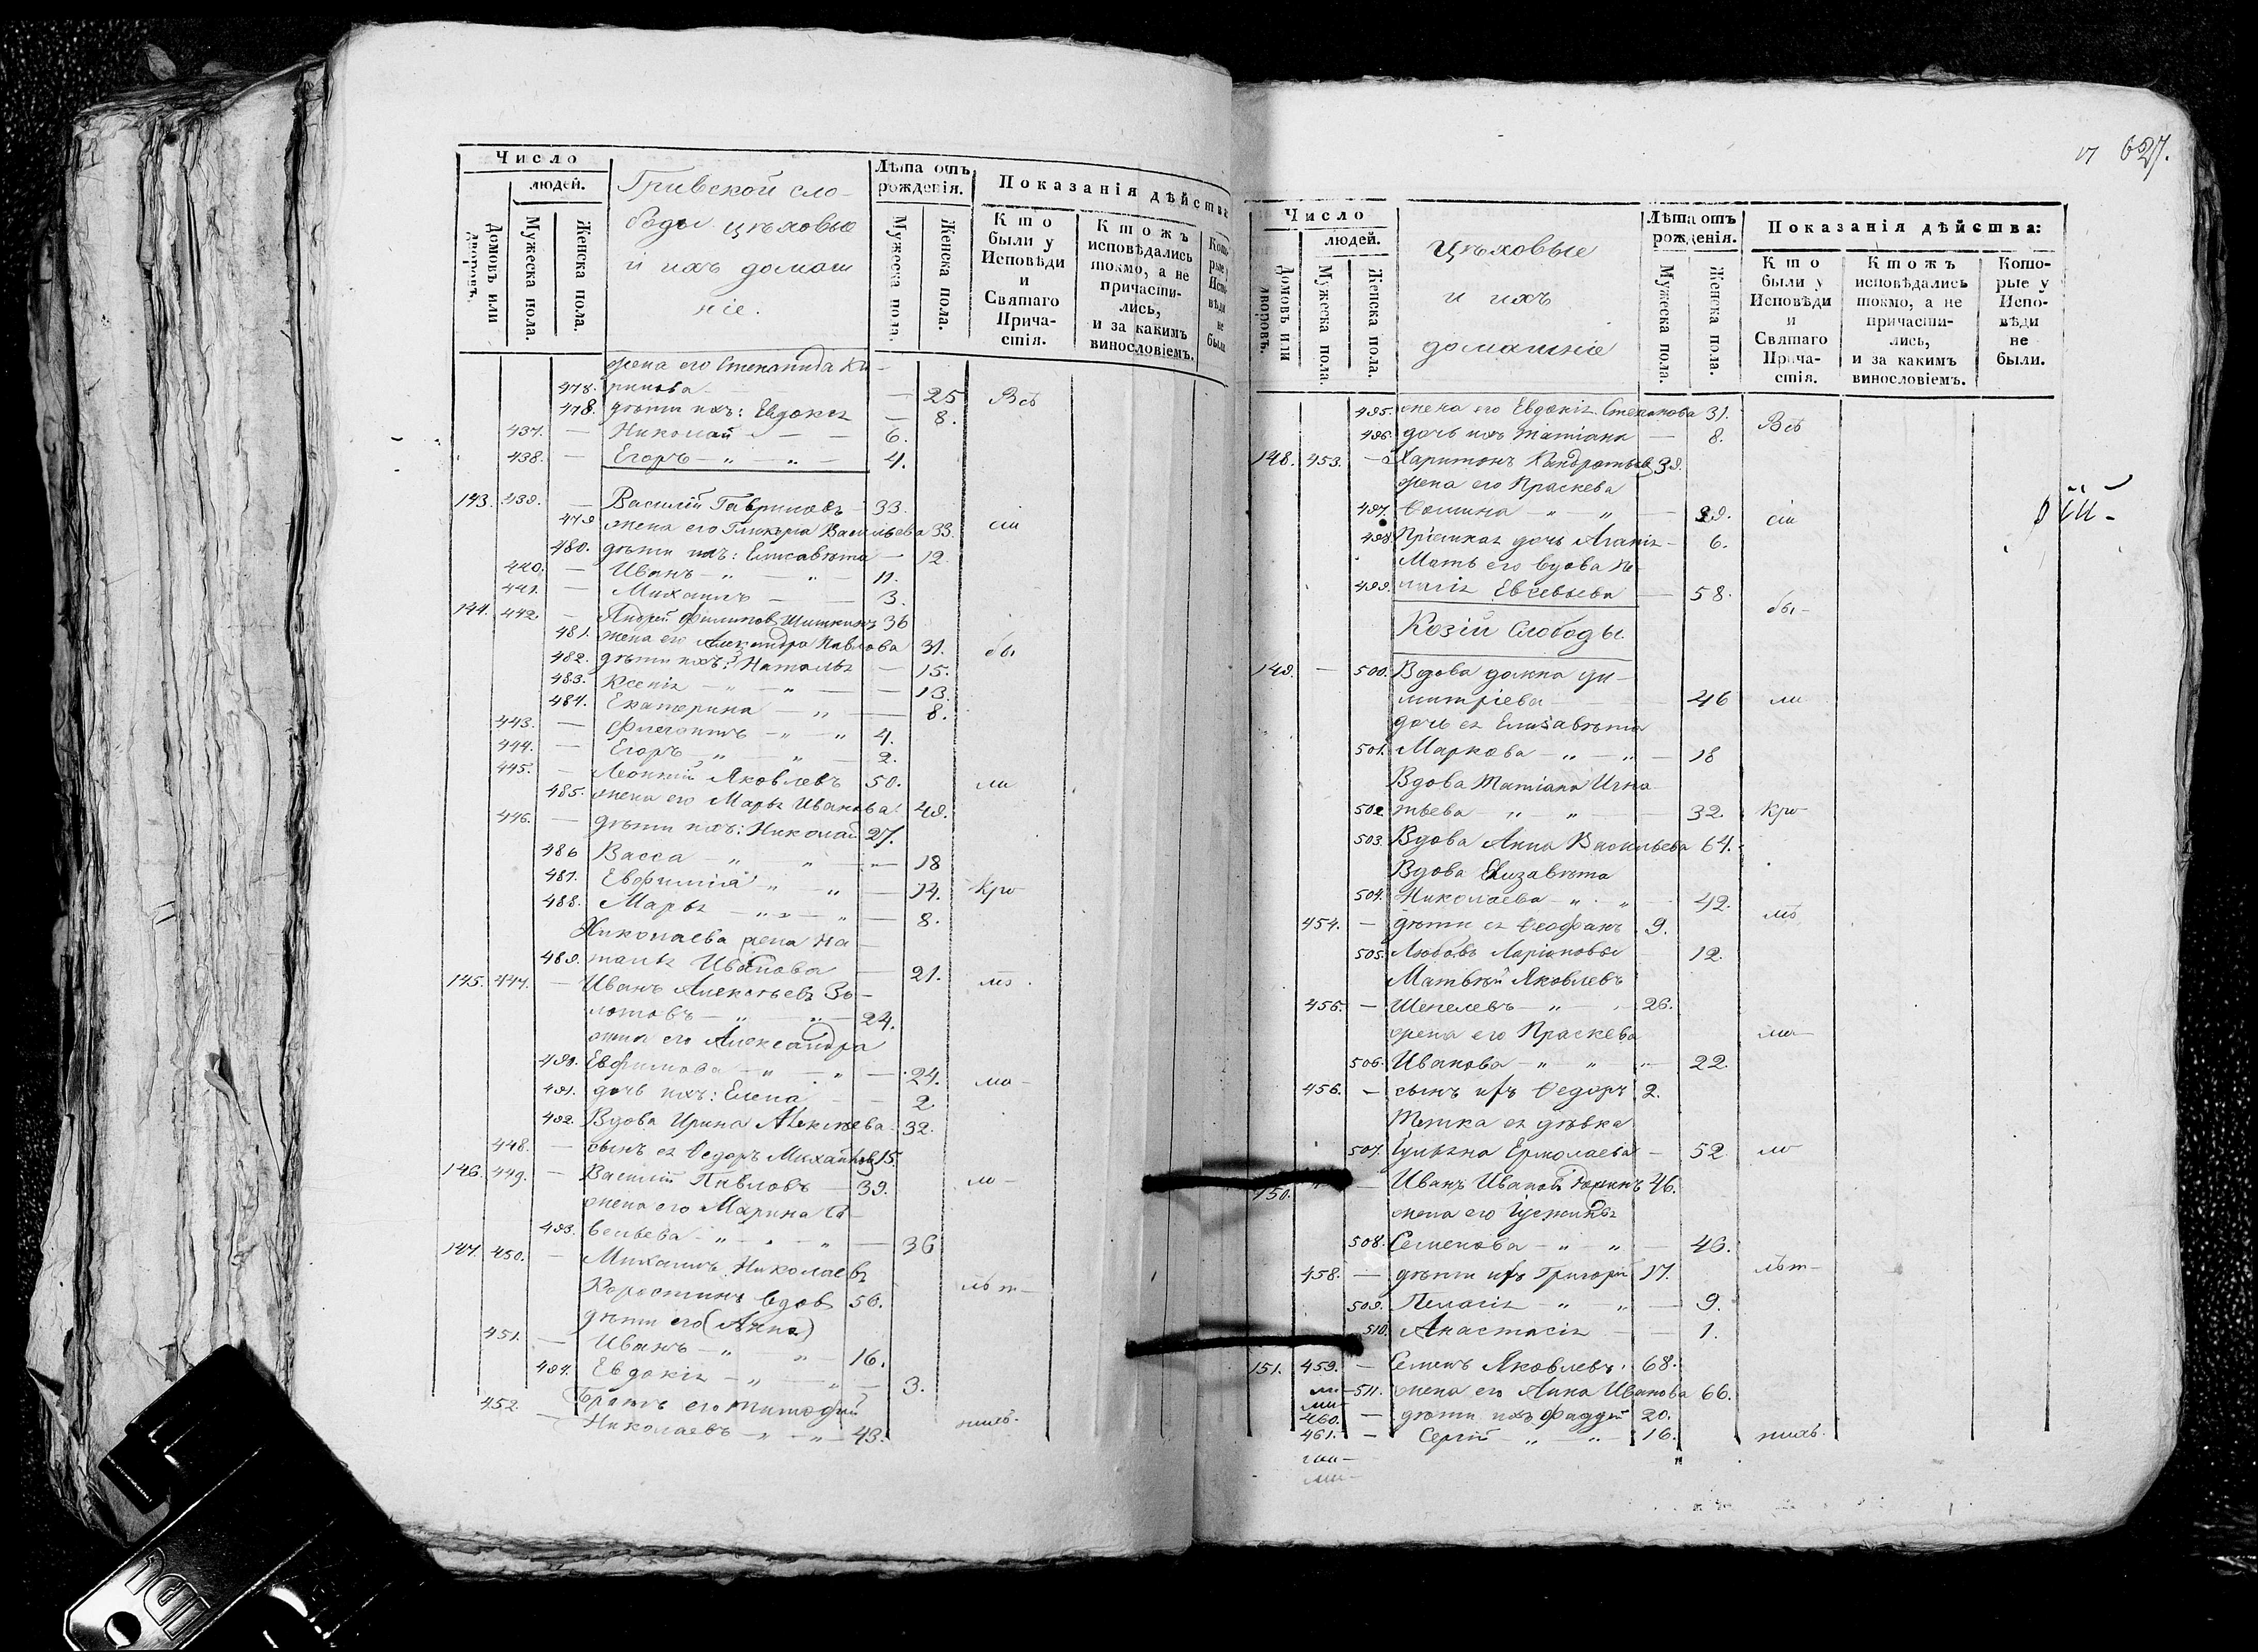 Число
людей.
Домовъ или дворовъ.
Мужеска пола.
Женска пола.
Гривской сло-
боды цѣховые
и ихъ домаш
ніе.
Лѣта отъ рожденія.
Мужеска пола.
Женска пола.
Показанія дѣйства
Кто были у Исповѣди и Святаго Прича-стія.
Ктожъ исповѣдались токмо, а не причасти-лись, и за какимъ винословіемъ.
жена его Степанида Ки-
478. рилова — 25 Всѣ
478. дѣти ихъ: Евдокія — 8.
437. — Николай — — 6.
438. — Егоръ — " — " — 4.
143. 439. — Василій Гавриловъ — 33.
479 жена его Гликерія Васильева 33. сіи
480. дѣти ихъ: Елисавета — 12.
440. — Иванъ — " — " — 11.
441. — Михаилъ — — 3.
144. 442 — Андрей Филиповъ Шишкинъ 36
481. жена его Александра Павлова 31. бы
482. дѣти ихъ: Наталья — 15.
483. Ксенія — " — " — 13.
484. Екатерина — " — 8.
443. — — " — " 4.
444. — Егоръ " — " — 2.
445. — Леонтій Яковлевъ 50. ли
485. жена его Марья Иванова 49.
446. — дѣти ихъ: Николай 27.
486 Васса — " " — 18
487. Евфимія " — " — 14. Кро
488. Марья — " " — " — 8.
Николаева жена На-
489. талья Иванова — 21. мѣ
145. 447. — Иванъ Алексѣевъ Зо-
лотовъ — " — " — 24.
жена его Александра
490. Евфимова — " — " — 24. мо-
491. дочь ихъ: Елена — 2.
492. Вдова Ирина Алексѣева 32.
448. — сынъ ея Ѳедоръ Михайловъ 15.
146. 449. — Василій Павловъ — 39. ло-
жена его Марина Са-
493. вельева — " — " — 36
147. 450. — Михаилъ Николаевъ
Коростинъ вдовъ 56. лѣт-
дѣти его (Анна)
451. — Иванъ — " — " — 16.
494. Евдокія — " — " — 3.
452. — Братъ его Тимофей
Николаевъ — " — " — 43. нихъ.
627.
Число
людей.
Домовъ или дворовъ.
Мужеска пола.
Женска пола.
Цѣховые
и ихъ
домашніе
Лѣта отъ рожденія.
Мужеска пола.
Женска пола.
Показанія дѣйства:
Кто были у Исповѣди и Святаго Прича-стія.
Ктожъ исповѣдались токмо, а не причасти-лись, и за какимъ винословіемъ.
Кото-рые у Испо-вѣди не были.
495. жена его Евдокія Степанова 31. Всѣ
496. дочь ихъ Татіана — 8.
148. 453. — Харитонъ Кандратьевъ 39.
жена его Праскева
497. Ѳомина — " — " — 39. сіи
498 Пріемная дочь Агапія — 6.
Мать его вдова Пе-
499. лагія Евсевьева — 58. бы-
Козій Слободы.
149. — 500. Вдова Домна Ди-
митріева — 46 ли
дочь ея Елисавета
501. Маркова — " — " — 18
Вдова Татіана Игна
502 тьева — " — " — 32. Кро
503. Вдова Анна Васильева 64.
Вдова Елизавета
504. Николаева — " — " — 42. мѣ
454. — дѣти ея Ѳеофанъ 9.
505. Любовь Ларіоновы 12.
Матвѣй Яковлевъ
456. — Шепелевъ — " — 26.
жена его Праскева ма-
506. Иванова — " — " — 22.
456. — сынъ ихъ Ѳедоръ 2.
Тетка ея дѣвка
507. Ульяна Ермолаева — 52 ло
150. — Иванъ Ивановъ 46.
жена его
508. Семенова — " — " — 46.
458. — дѣти ихъ Григорій 17. лѣт-
509. Пелагія — " — " — 9.
510. Анастасія — — 1.
151. 459. — Семенъ Яковлевъ 68.
511. жена его Анна Иванова 66.
460. — дѣти ихъ Фаддей 20.
461. — Сергій — " — " — 16. нихъ.